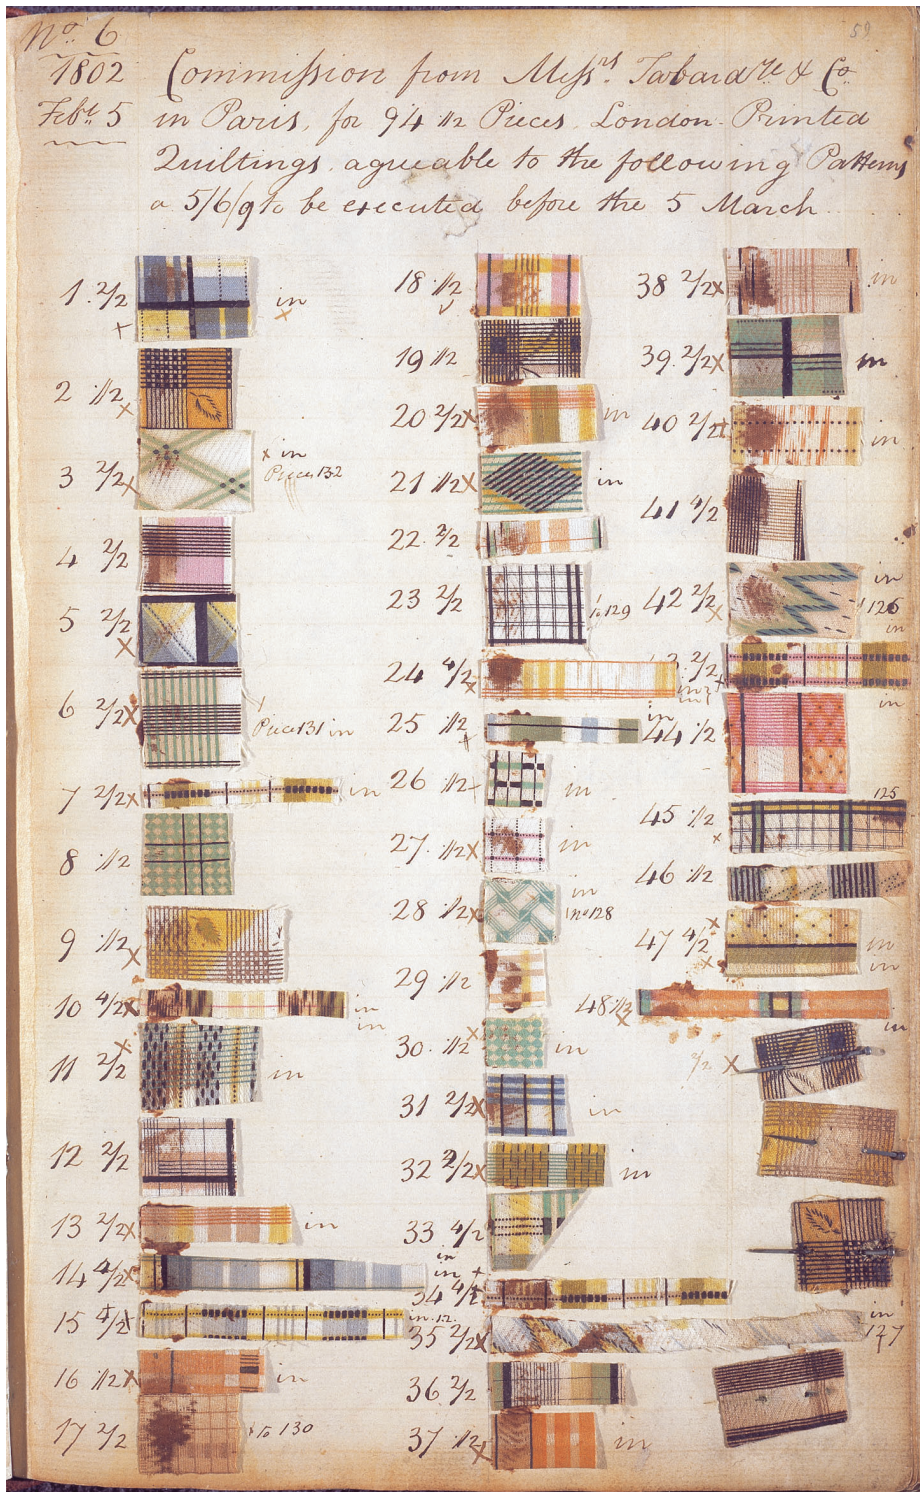 No. 6
59
1802
Feb. 5
Commission from Messrs. & Co.
in Paris, for 94 1/2 Pieces London Printed
Quiltings agreeable to the following Patterns
a 5/6/9 to be executed before the 5 March
1. 2/2 x in x
2 1/2 x
3 2/2 x x in
Piece 132
4 2/2
5 2/2 x
6 2/2 x x
Piece 131 in
7 2/2 x in
8 1/2
9 1/2 x
10 4/2 x in
in
11 2/2 x in
12 2/2
13 2/2 x in
14 4/2 x in
in
15 4/2 x in
16 1/2 x in
17 2/2 x to 130
18 1/2
19 1/2
20 2/2 x in
21 1/2 x in
22 2/2
23 2/2 129
24 4/2 x in
in
25 1/2 x in
26 1/2 in
27 1/2 x in
28 1/2 x in
No 128
29 1/2
30 1/2 x in
31 2/2 x in
32 2/2 x in
33 4/2
34 4/2 x
35 2/2 x in
127
36 2/2
37 1/2 x in
38 2/2 x in
39 2/2 x in
40 2/2 x in
41 4/2
42 2/2 x in
126
in
2/2 x in
44 1/2
125
45 1/2 x
46 1/2
47 4/2 x x in
in
48 1/2 x in
1/2 x